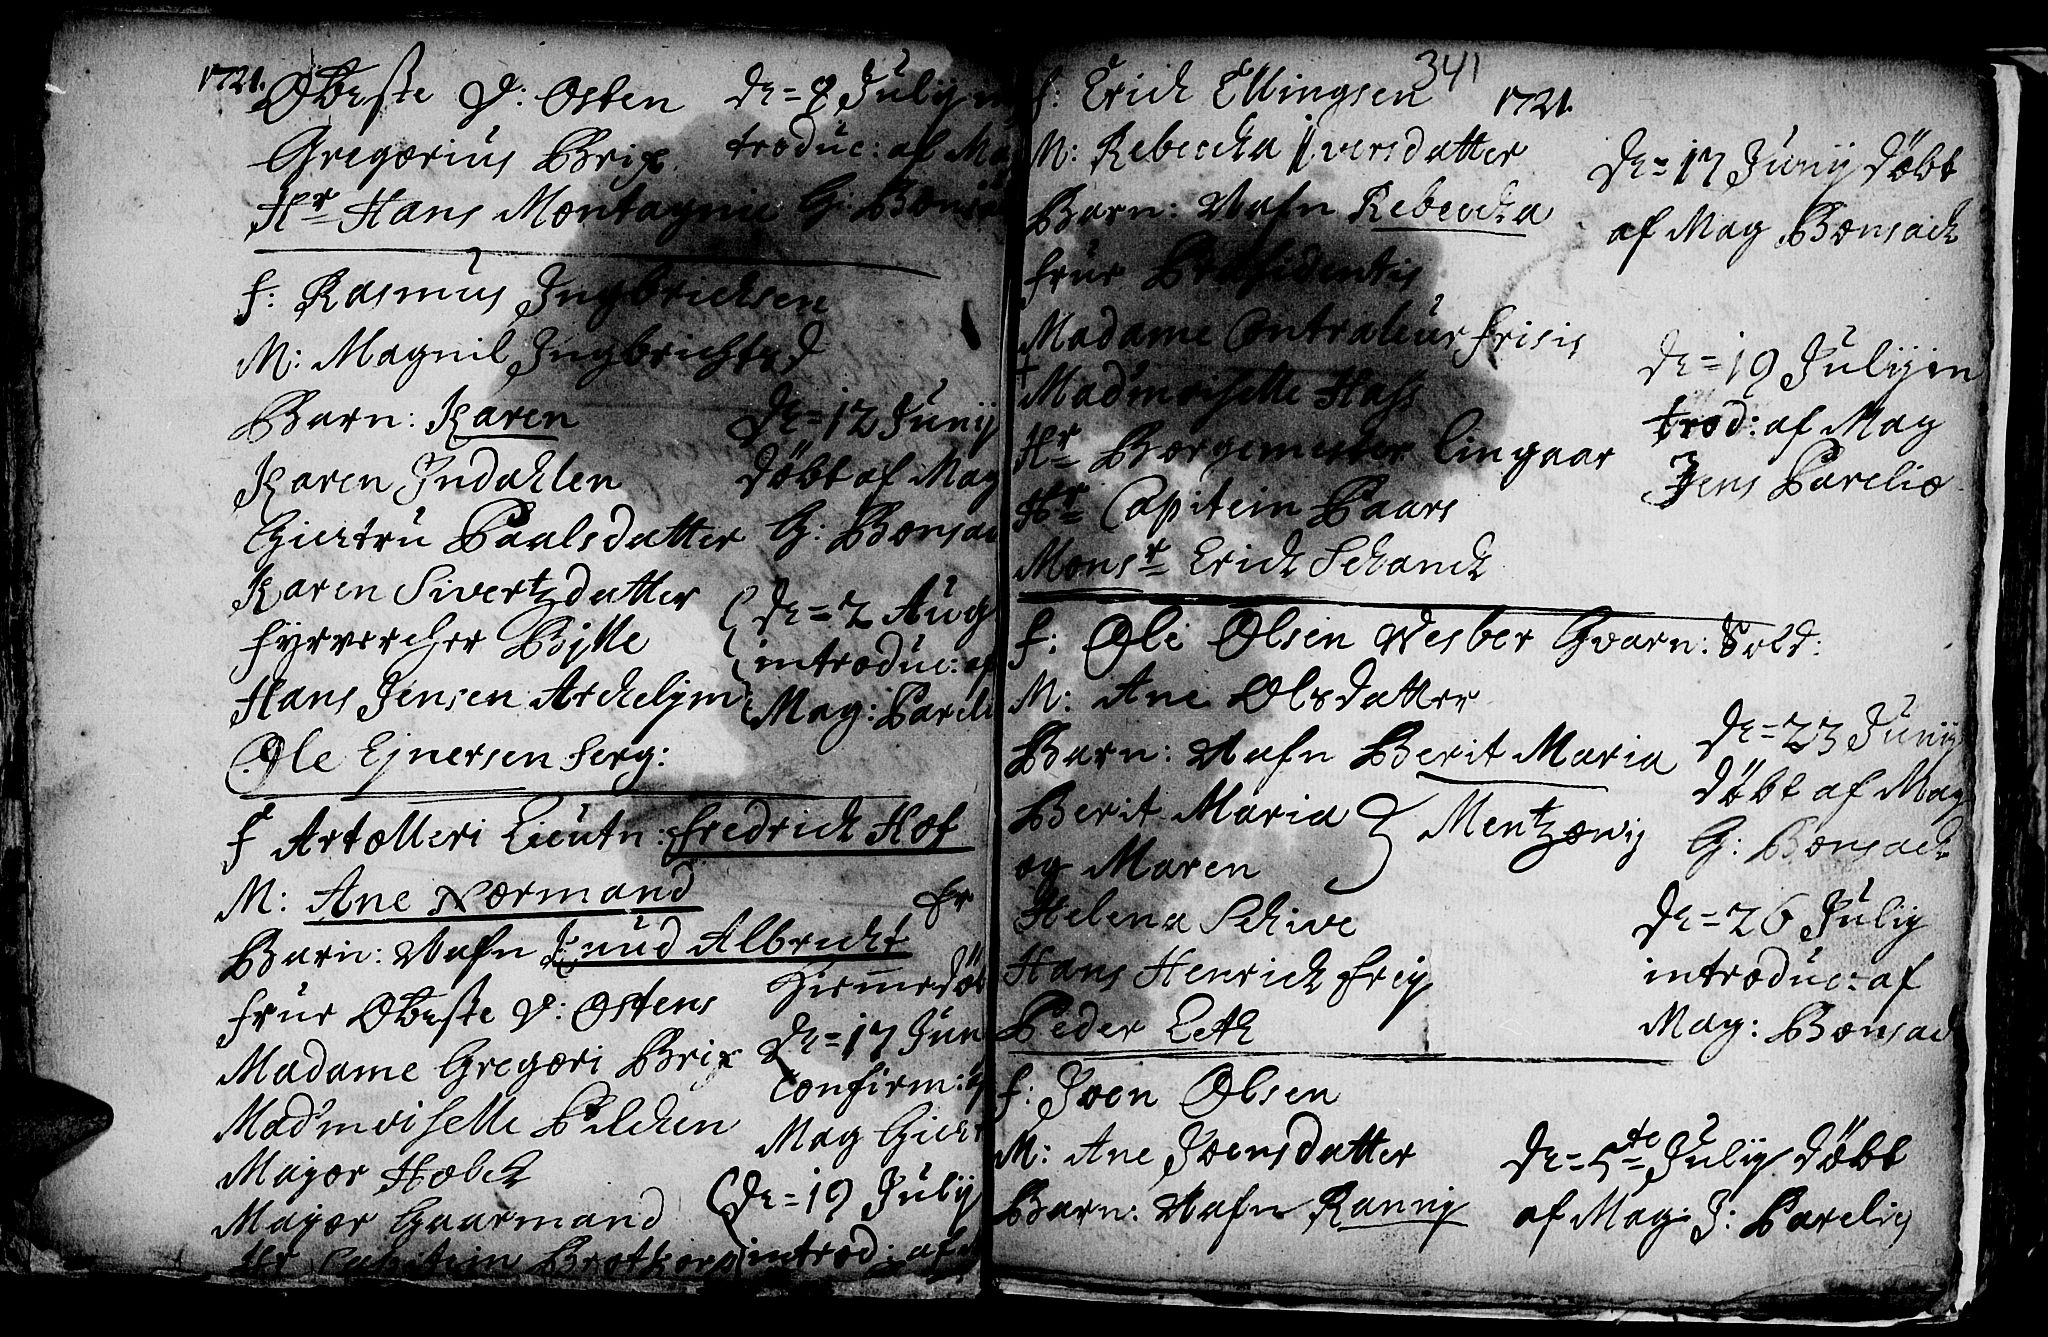 1721.
Obeste V: Osten
Gregorius Brix
Hr Hans Montagnie
de=8 Julij in
troduc: af Mag
G: Bonsac
F: Rasmus Ingbrichsen
M: Magnil Ingbrichtzd
Barn: Karen
Karen Indahlen
Giertru Paalsdatter
Karen Sivertzdatter
fyrvercher Bille
Hans Jensen Archelym
Ole Ejnersen Serg:
de=12 Junij
döbt af Mag
G: Bonsac
de=2 Aug
introduc: af
Mag: Pareli
F Artolleri Lieutn: Fredrich Hof
M: Ane Normand
Barn: Nafn Knud Albricht
Frue Obeste V: Ostens
Madame Gregori Brix
Mad'moiselle Pilchen
Major Hobech
Major Gaarmand
Hr Capitein
er
Hiemedöbt
de=17 Jun
confirm: af
Mag Giert
de=19 Julij
introd: af
341
1721.
F: Erich Ellingsen
M: Rebeccha Iversdatter
Barn: Nafn Rebeccha
Frue Præsidentis
Madame Contraleur Frisis
Mad'moiselle Hass
Hr Borgemester Lingaar
Hr Capitein Paars
Monsr Erich Schanch
de=17 Junij döbt
af Mag Bonsach
de=19 Julij in
trod: af Mag
Jens Parelio
F: Ole Olsen Vesber Gvarn: Sold:
M: Ane Olsdatter
Barn: Nafn Berit Maria
Berit Maria
og Maren
Mentzonij
Helena Schive
Hans Henrich Frijs
Peder Leth
de=23 Junij
döbt af Mag
G: Bonsach
de=26 Julij
introduc: af
Mag: Bonsach
F: Joen Olsen
M: Ane Joensdatter
Barn: Nafn Ranny
de=5te Julij döbt
af Mag: J: Parelig